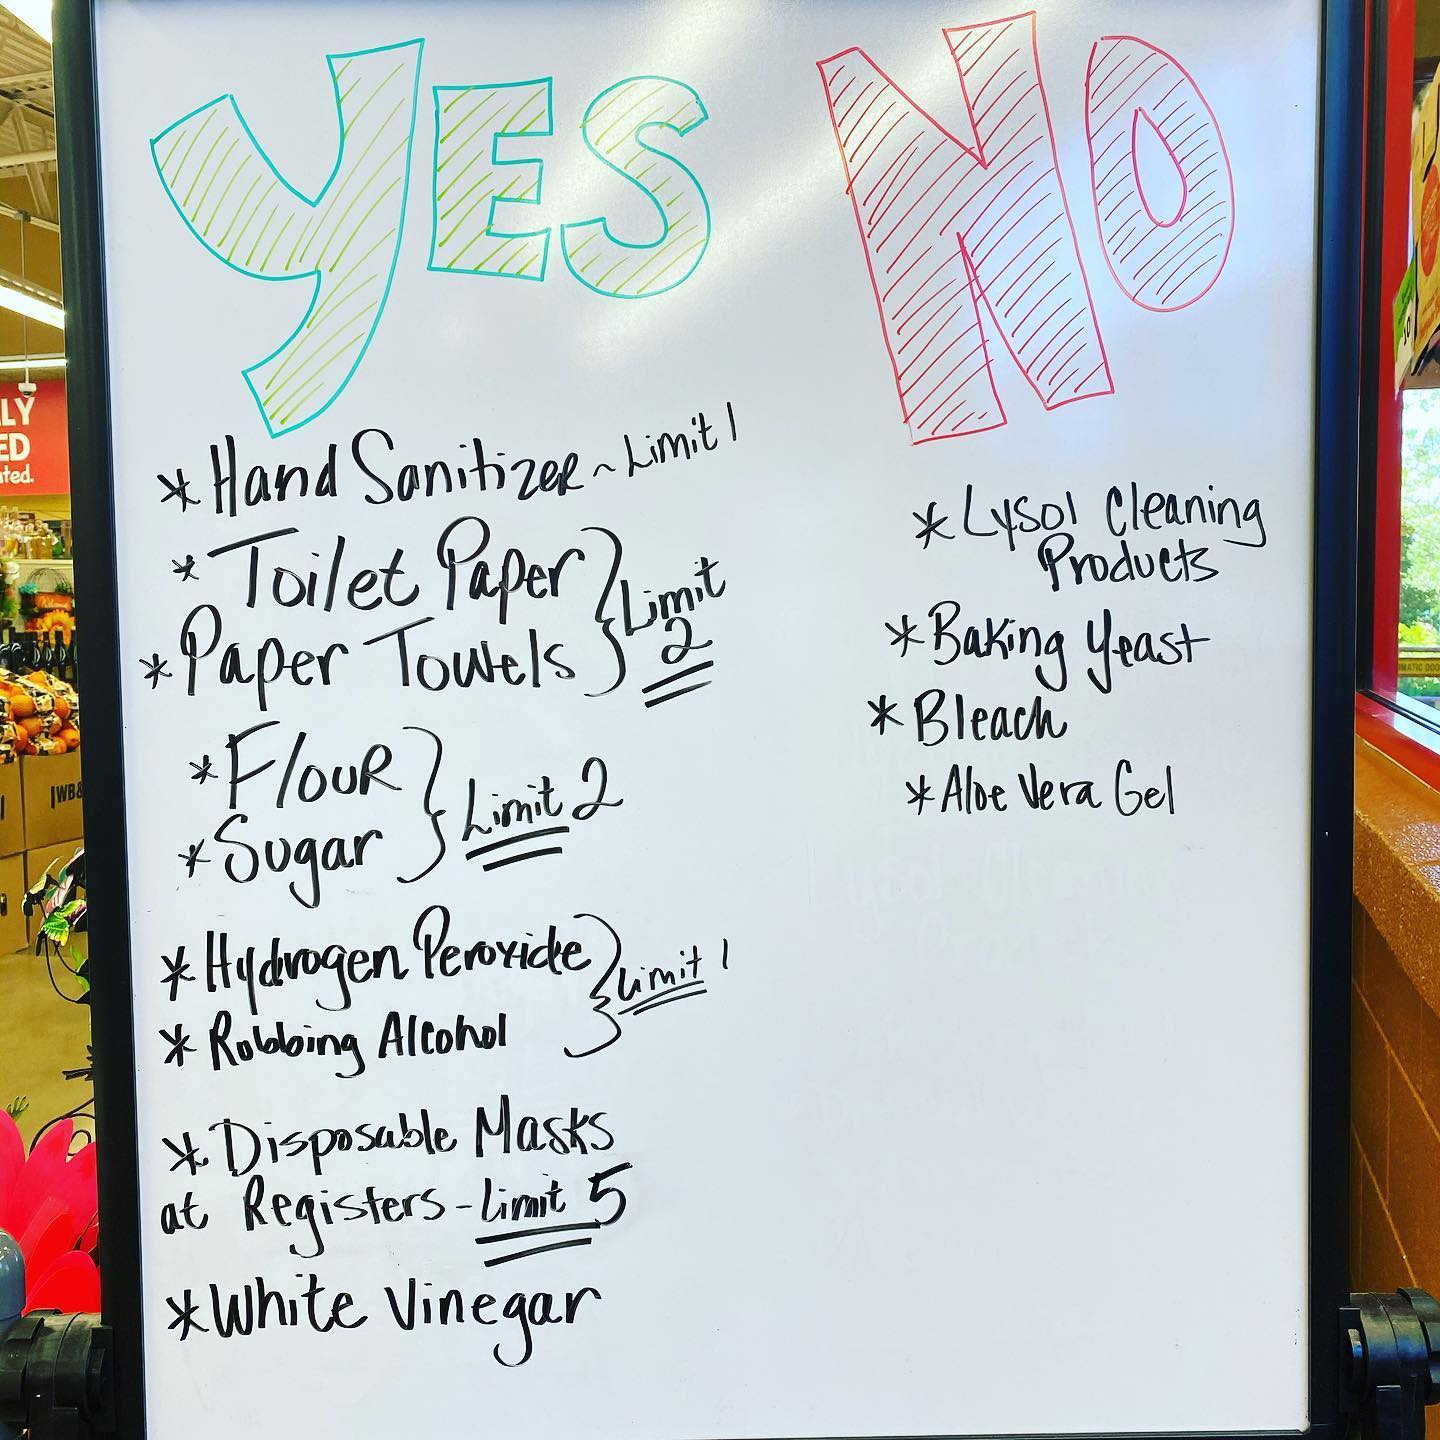 YES NO
* Hand Sanitizer ~ Limit 1
* Toilet Paper
* Paper Towels
Limit
2
* Flour
* Sugar
Limit 2
* Hydrogen Peroxide
* Robbing Alcohol
Limit 1
* Disposable Masks
at Registers - Limit 5
* White Vinegar
* Lysol Cleaning
Products
* Baking Yeast
* Bleach
* Aloe Vera Gel
LY
ED
ted.
WB&
MATIC DOO